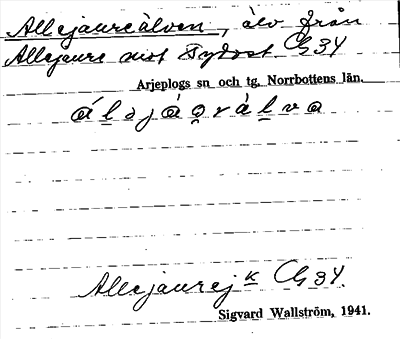 Allejaureälven, älv från
Allejaure mot sydost G34
Arjeplogs sn och tg. Norrbottens län.
Allejaurejk G34.
Sigvard Wallström, 1941.